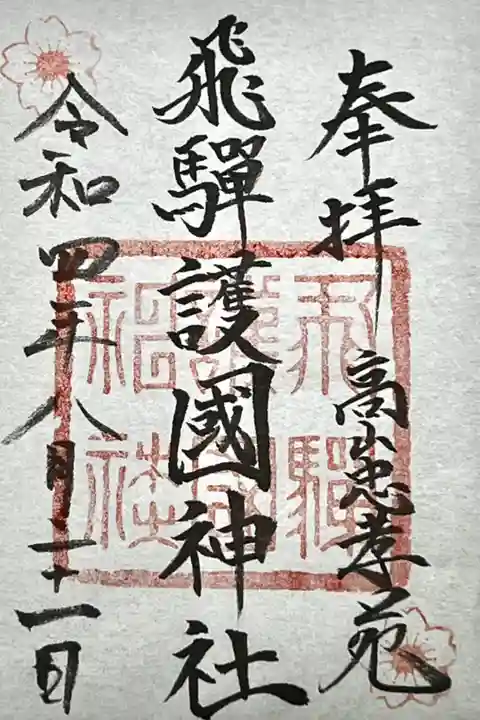 奉拝 高山忠孝苑
飛驒護國神社
令和四年八月二十一日
飛驒護國神社